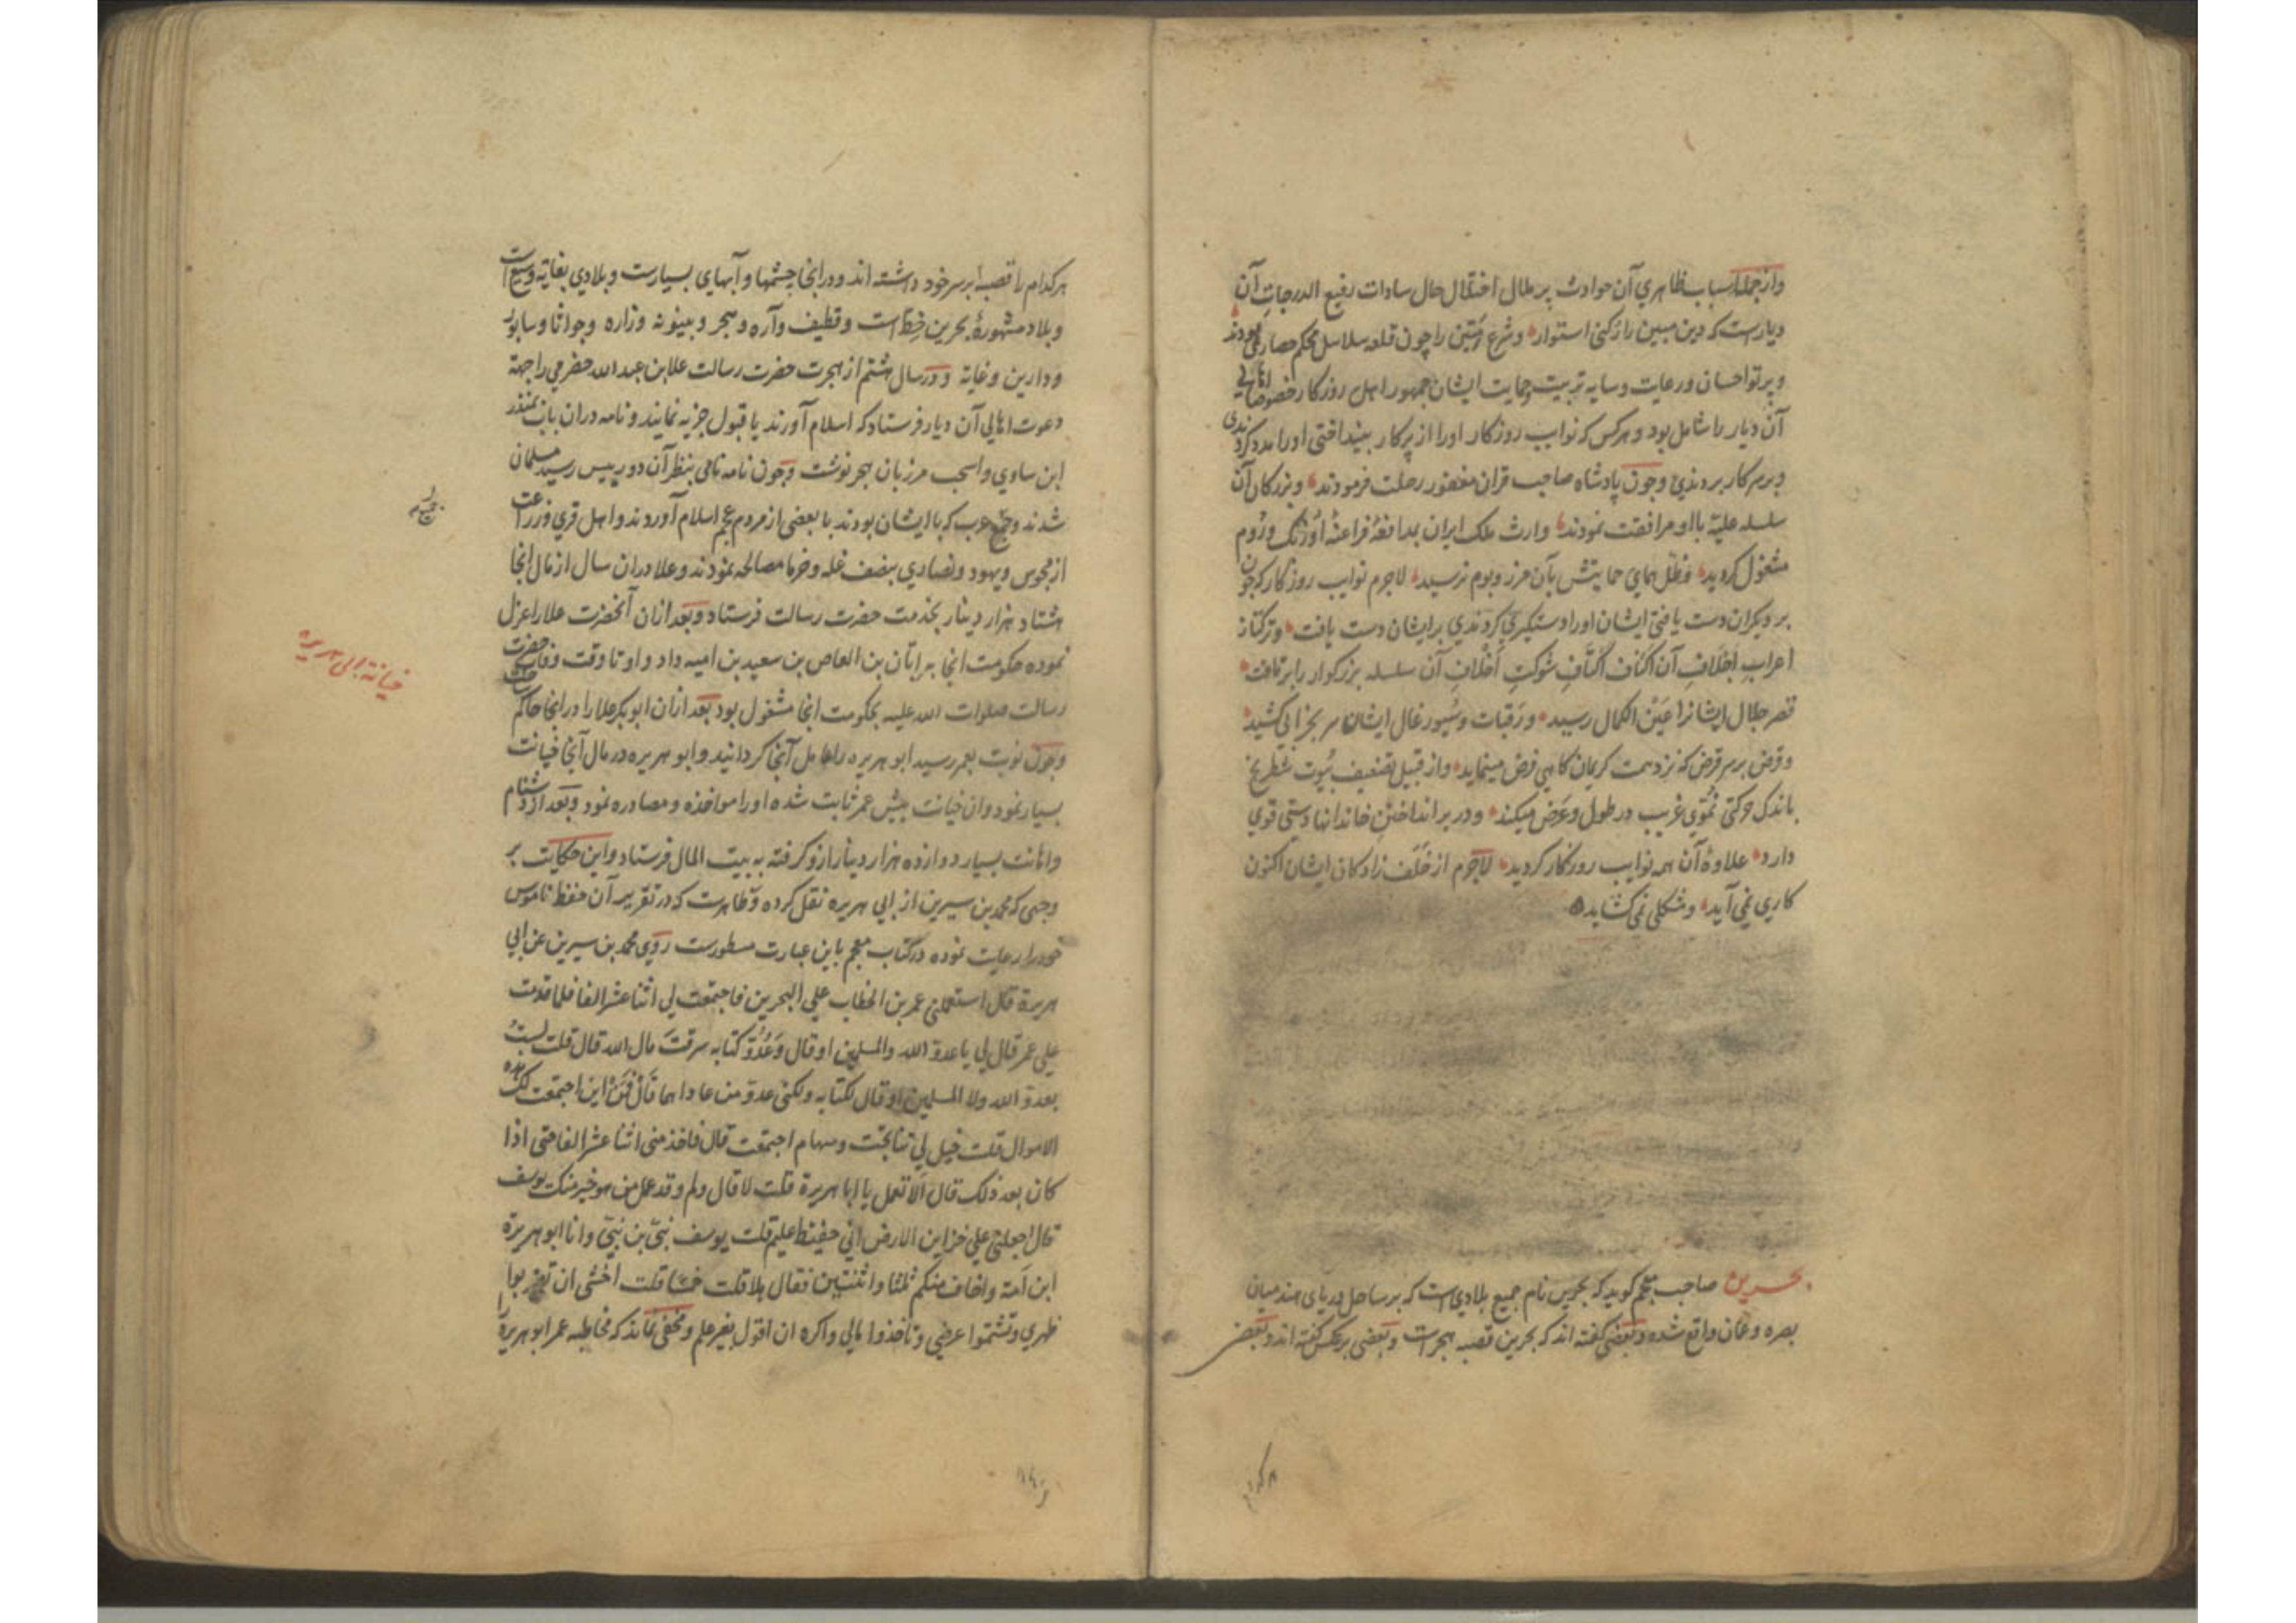 وازجمله اسباب ظاهري آن حوادث پر ملال اختلال حال سادات رفيع الدرجات آن
ديارست كه دين مبين را ركني استوار وشرع متين را چون قلعه سلاسل محكم حصاري بودند
وپرتو احسان ورعايت وسايه تربيت وحمايت ايشان جمهور اهل روزكار خصوصا اهالي
آن ديار را شامل بود وهركس كه نوايب روزكار اورا از پركار بينداختي اورا مدد كردندي
وبرسر كار بردندي وچون پادشاه صاحب قران مغفور رحلت فرمودند وبزركان آن
سلسله عليّه با او مرافقت نمودند وارث ملك ايران بمدافعهٔ فراعنهٔ اوزبك وروم
مشغول كرديد وظل هماي حمايتش بآن مرز وبوم نرسيد لاجرم نوايب روزكار كه چون
بر ديكران دست يافتي ايشان اورا دستكيري كردندي بر ايشان دست يافت وتركتاز
اعراب اجلاف آن اكناف اكتاف شوكت اخلاف آن سلسله بزركوار را برتافت
قصر جلال ايشانرا عين الكمال رسيد ورقبات وسيورغال ايشان سر بخرابي كشيد
وقرض برسر قرض كه نزد همت كريمان كاهي فرض مينمايد واز قبيل تضعيف بيوت شطرنج
باندك حركتي نموّي غريب در طول وعرض ميكند ودر بر انداختن خاندانها دستي قوي
دارد علاوهٔ آن همه نوايب روزكار كرديد لاجرم از خلف زادكان ايشان اكنون
كاري نمي آيد ومشكلي نمي كشايد
بحرين صاحب معجم كويد كه بحرين نام جميع بلادي است كه بر ساحل درياي هند ميان
بصره وعمان واقع شده وبعضي كفته اند كه بحرين قصبه هجرست وبعضي برعكس كفته اند وبعضي
هركدام
هركدام را قصبهٔ برسر خود داشته اند ودرانجا چشمها وآبهاي بسيارست وبلادي بغايه وسيع است
وبلاد مشهورهٔ بحرين خط است وقطيف وآره وهجر وبينونه وزاره وجواثا وسابور
ودارين وغابه ودر سال هشتم از هجرت حضرت رسالت علا بن عبد الله حضرمي را جهة
دعوت اهالي آن ديار فرستاد كه اسلام آورند يا قبول جزيه نمايند ونامه دران باب بمنذر
ابن ساوي واسحب مرزبان هجر نوشت وچون نامه نامي بنظر آن دو رييس رسيد مسلمان
شدند وجميع عرب كه با ايشان بودند با بعضي از مردم عجم اسلام آوردند واهل قري وزراعت
از مجوس ويهود ونصاري بنصف غله وخرما مصالحه نمودند وعلا دران سال از مال انجا
هشتاد هزار دينار بخدمت حضرت رسالت فرستاد وبعد ازان آنحضرت علا را عزل
نموده حكومت انجا به ابان بن العاص بن سعيد بن اميه داد واو تا وقت وفات حضرت
رسالت صلوات الله عليه بحكومت انجا مشغول بود بعد ازان ابو بكر علا را درانجا حاكم ساخت
وچون نوبت بعمر رسيد ابو هريره را عامل آنجا كردانيد وابو هريره در مال آنجا خيانت
بسيار نمود وان خيانت پيش عمر ثابت شده اورا مواخذه ومصادره نمود وبعد از دشنام
واهانت بسيار دوازده هزار دينار ازو كرفته به بيت المال فرستاد واين حكايت بر
وجهي كه محمد بن سيرين از ابي هريره نقل كرده وظاهرست كه در تقرير آن حفظ ناموس
خودرا رعايت نموده در كتاب معجم باين عبارت مسطورست روي محمد بن سيرين عن ابي
هريرة قال استعملني عمر بن الخطاب علي البحرين فاجتمعت لي اثنا عشر الفا فلما قدمت
علي عمر قال لي يا عدو الله والمسلمين او قال وعدو كتابه سرقت مال الله قال قلت لست
بعدو الله ولا المسلمين او قال لكتابه ولكني عدو من عاداهما قال فمن اين اجتمعت لك هذه
الاموال قلت خيل لي تناتجت وسهام اجتمعت قال فاخذ مني اثنا عشر الفا حتي اذا
كان بعد ذلك قال الا تعمل يا ابا هريرة قلت لا قال ولم وقد عمل من هو خير منك يوسف
قال اجعلني علي خزاين الارض اني حفيظ عليم قلت يوسف نبي بن نبي وانا ابو هريرة
ابن امة واخاف منكم ثلثا واثنتين فقال هلا قلت خمسا قلت اخشي ان تضربوا
ظهري وتشتموا عرضي وتأخذوا مالي واكره ان اقول بغير علم ومخفي نماند كه مخاطبه عمر ابو هريره را
خيانة ابي هريره